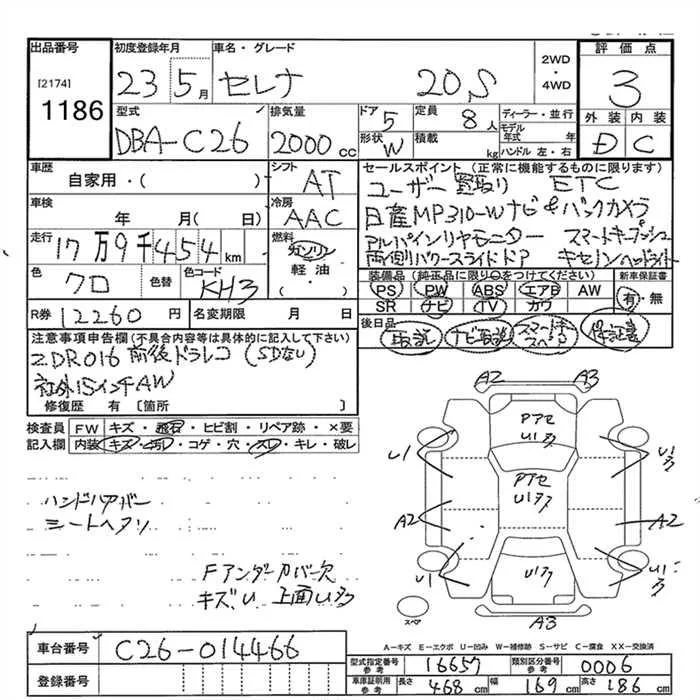 出品番号 初度登録年月 車名・グレード 2WD・4WD 評価点
[2174] 1186
23 5月 セレナ 20S 3
型式 排気量 ドア 定員 ディーラー・並行 外装 内装
DBA-C26 2000cc 5 8人 モデル年式 年
形状 W 積載 kg ハンドル 左・右 D C
車歴 シフト セールスポイント (正常に機能するものに限ります)
自家用・( ) AT
ユーザー買取り ETC
車検 冷房 日産MP310-Wナビ&バックカメラ
年 月( 日) AAC
走行 燃料 アルパインリヤモニター スマートキープッシュ
17万9千454km ガソリン・軽油・( )
両側パワースライドドア キセノンヘッドライト
色 色替 色コード 装備品 (純正品に限り○をつけてください) 新車保証書
クロ KH3 PS PW ABS エアB AW 有・無
SR ナビ TV カワ
R券 12260円 名変期限 月 日
後日品 取説 ナビ取説 スマートキースペア 保証書
注意事項申告欄 (不具合内容等は具体的に記入して下さい)
ZDR016 前後ドラレコ (SDなし)
社外15インチAW
修復歴 有 [箇所 ]
検査員記入欄 FW キズ・飛石・ヒビ割・リペア跡・×要
内装 キズ・汚レ・コゲ・穴・スレ・キレ・破レ
ハンドルカバー
シートヘタリ
Fアンダーカバー欠
キズ、U 上面Uララ
A2 A3
Pアセ
U1ララ
U1 U1ララ
Pアセ
U1ララ
A2 A2
U1ララ
U1 U1ララ
スペア A3
A-キズ E-エクボ U-凹み W-補修跡 S-サビ C-腐食 XX-交換済
車台番号 C26-014466
型式指定番号参考 16657 類別区分番号参考 0006
登録番号
車庫証明用参考 長さ 468cm 幅 169cm 高さ 186cm